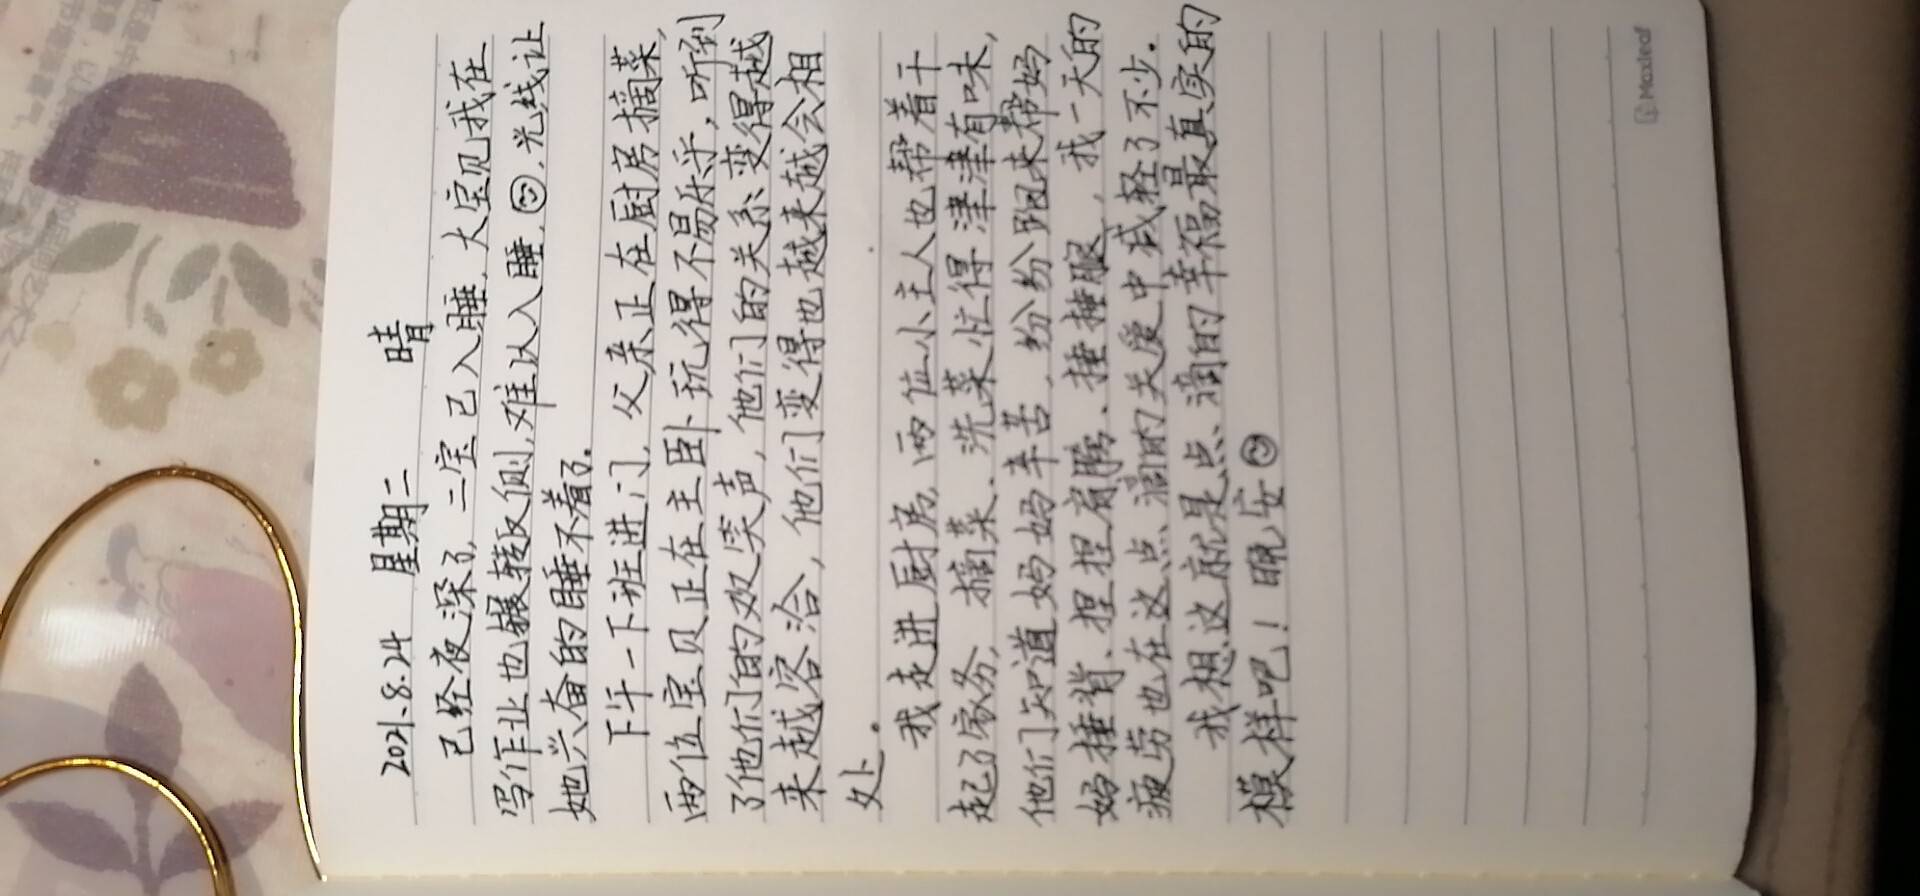 2021.8.24 星期二 晴
已经夜深了,二宝已入睡,大宝见我在
写作业也辗转反侧,难以入睡,光线让
她兴奋的睡不着了。
下午一下班进门,父亲正在厨房摘菜,
两位宝贝正在主卧玩得不易乐乎,听到
了他们的欢笑声,他们的关系变得越
来越容洽,他们变得也越来越会相
处。
我走进厨房,两位小主人也帮着干
起了家务,摘菜、洗菜忙得津津有味,
他们知道妈妈辛苦,纷纷跑来帮妈
妈捶背、捏捏肩膀、捶捶腿,我一天的
疲劳也在这点滴的关爱中减轻了不少。
我想这就是点滴的幸福最真实的
模样吧!晚安
Maxleaf